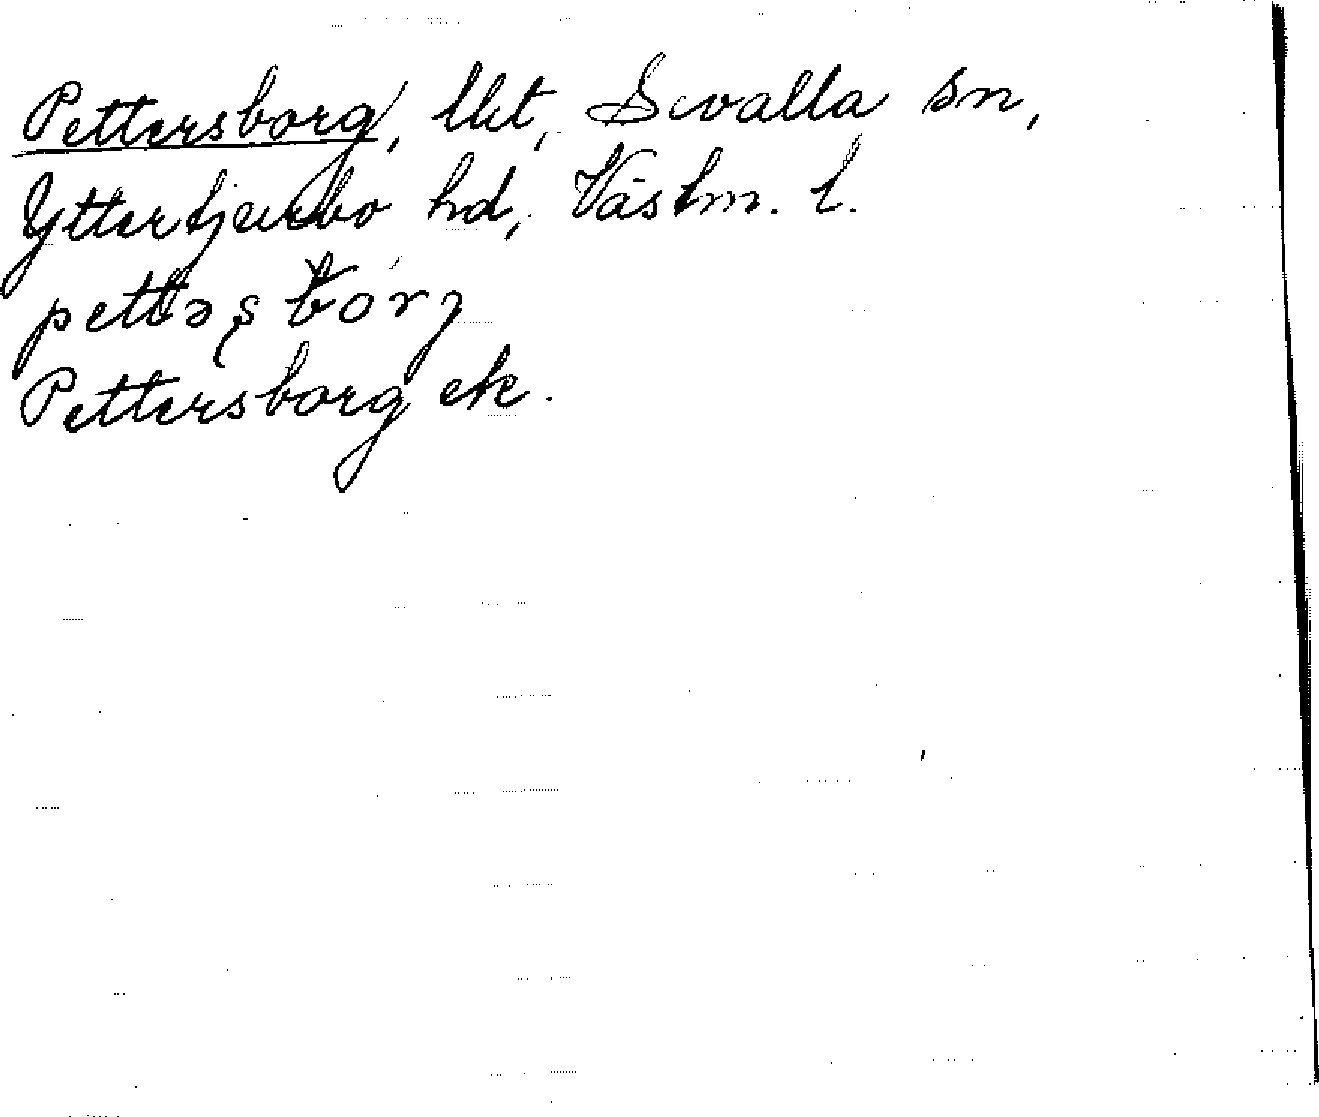 Pettersborg, lht, Sevalla sn,
Yttertjurbo hd, Västm. l.
Pettersborg ek.